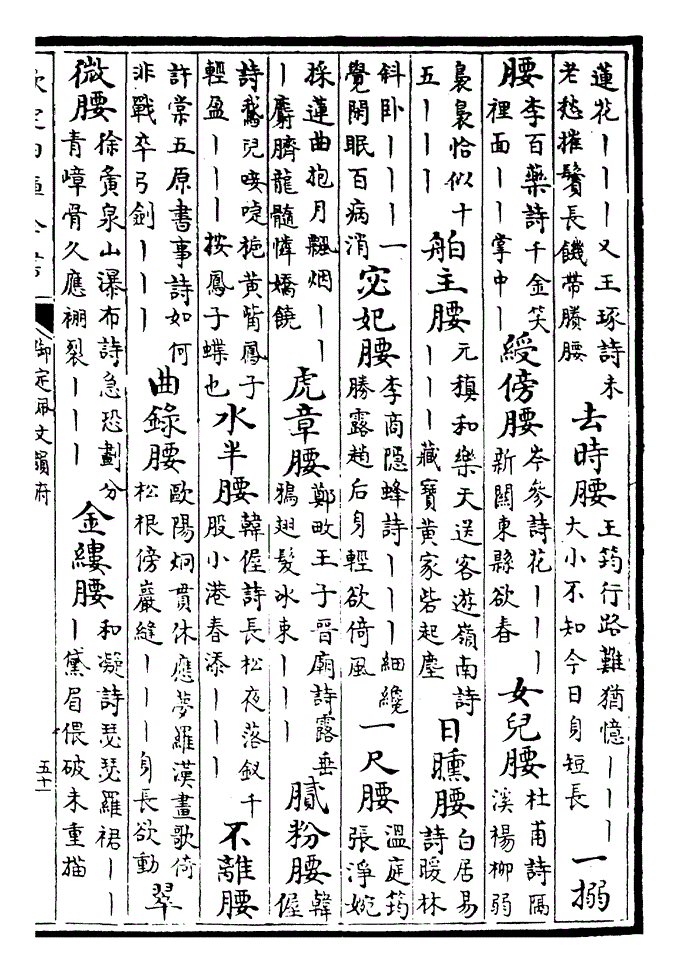 蓮花丨丨丨又王琢詩未
老愁摧鬢長饑帶賸腰
去時腰
王筠行路難猶憶丨丨丨
大小不知今日身短長
一搦
腰
李百藥詩千金笑
裡面丨丨掌中丨
綬傍腰
岑參詩花丨丨丨
新關東縣欲春
女兒腰
杜甫詩隔
溪楊柳弱
裊裊恰似十
五丨丨丨
舶主腰
元稹和樂天送客遊嶺南詩
丨丨丨藏寶黃家砦起塵
日曛腰
白居易
詩暖林
斜卧丨丨丨一
覺閒眠百病消
宓妃腰
李商隱蜂詩丨丨丨細纔
勝露趙后身輕欲倚風
一尺腰
溫庭筠
張淨婉
採蓮曲抱月飄烟丨丨
丨麝臍龍髓憐嬌饒
虎章腰
鄭畋王子晉廟詩露垂
鴉翅髮冰束丨丨丨
膩粉腰
韓
偓
詩鵞兒唼啑梔黃觜鳳子
輕盈丨丨丨按鳳子蝶也
水半腰
韓偓詩長松夜落釵千
股小港春添丨丨丨
不離腰
許棠五原書事詩如何
非戰卒弓劍丨丨丨
曲錄腰
歐陽炯貫休應夢羅漢畫歌倚
松根傍巖縫丨丨丨身長欲動
翠
微腰
徐夤泉山瀑布詩急恐劃分
青嶂骨久應裂丨丨丨
金縷腰
和凝詩瑟瑟羅裙丨丨
丨黛眉偎破未重描
欽定四庫全書
御定佩文韻府
五十一